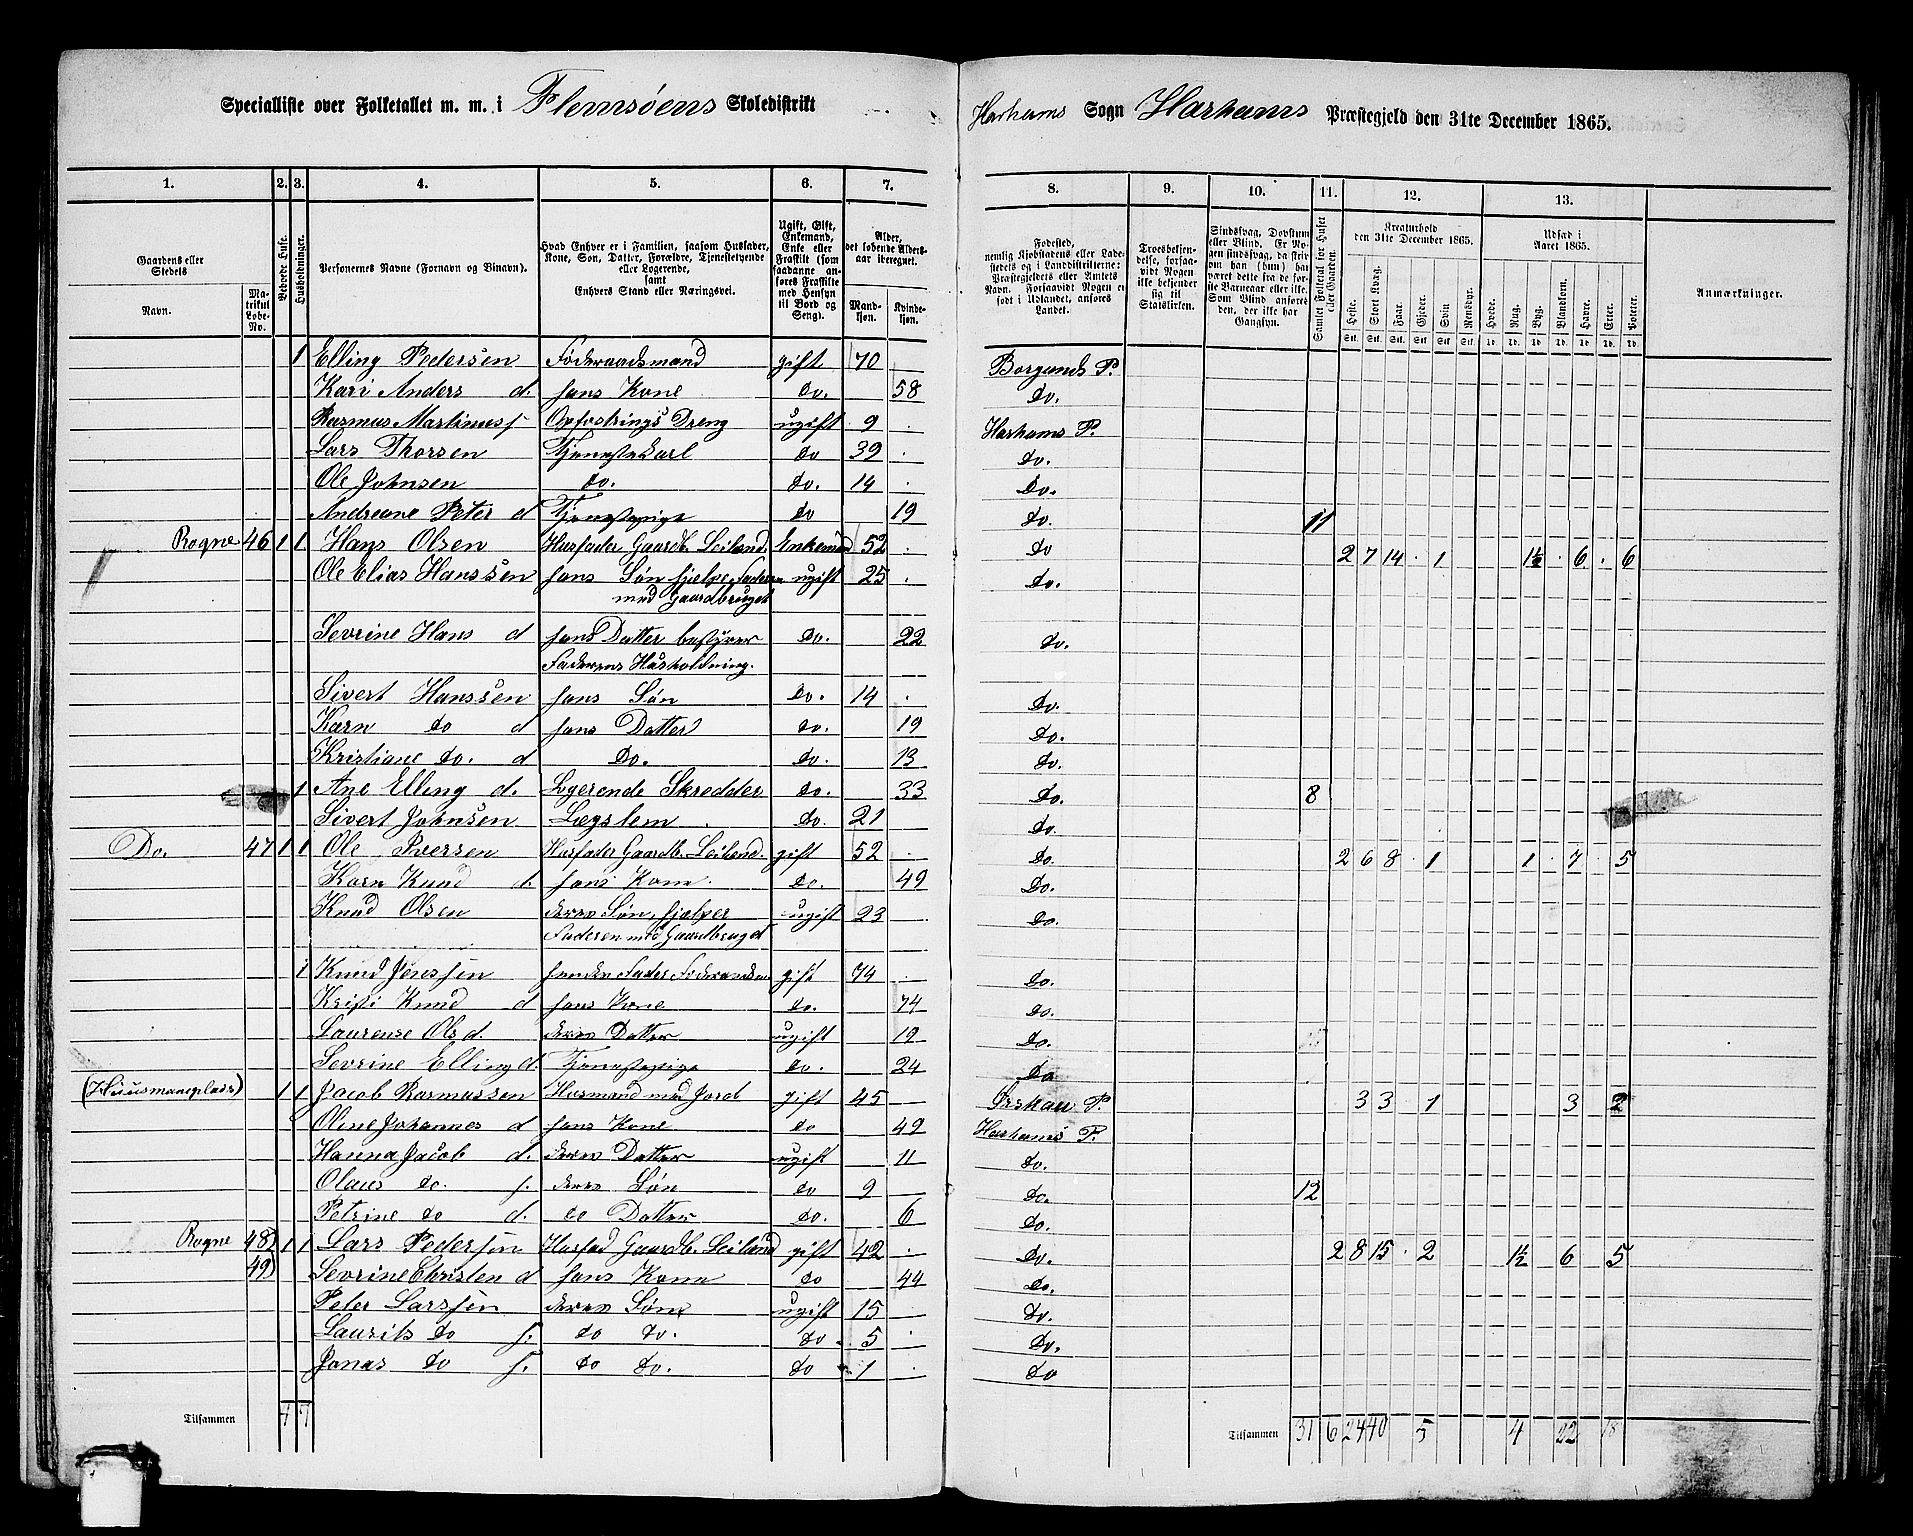 Specialliste over Folketallet m. m. i Flemsöens Skoledistrikt
Harhams Sogn Harhams Præstegjeld den 31te December 1865.
1. 2. 3. 4. 5. 6. 7. 8. 9. 10. 11. 12. 13.
Gaardens eller Stedets
Navn. Matrikul Løbe-No.
Beboede Huse.
Husholdninger.
Personernes Navne (Fornavn og Tilnavn).
Hvad Enhver er i Familien, saasom Husfader, Kone, Søn, Datter, Forældre, Tjenestetyende eller Logerende, samt Enhvers Stand eller Næringsvei.
Ugift, Gift, Enkemand, Enke eller Fraskilt (som saadanne anføres Fraskilte med Hensyn til Bord og Seng).
Alder, det løbende Aldersaar iberegnet.
Mandkjøn. Kvindekjøn.
Fødested, nemlig Kjøbstadens eller Ladestedets og i Landdistrikterne: Præstegjeldets eller Amtets Navn. Forsaavidt Nogen er født i Udlandet, anføres Landet.
Troesbekjendelse, forsaavidt Nogen ikke bekjender sig til Statskirken.
Sindssvag, Døvstum eller Blind. Er Nogen sindssvag, da skrives om han (hun) har været dette fra de første Barneaar eller ikke. Som Blind anføres den, der ikke har Gangsyn.
Samlet Folketal for Huset eller Gaarden.
Kreaturhold den 31te December 1865.
Heste. Stort Kvæg. Faar. Gjeder. Svin Rensdyr.
Udsæd i Aaret 1865.
Hvede. Rug. Byg. Blandkorn. Havre. Erter. Poteter.
Anmærkninger.
1 Elling Pedersen Föderaadsmand gift 70 Borgunds P.
Kari Anders d. hans Kone do. 58 do.
Rasmus Martinus s Opfostrings Dreng ugift 9 Harhams P.
Lars Thorsen Tjenestekarl do 39 do.
Ole Johnsen do. do. 14 Do.
Andreane Peter d Tjenestepige do 19 do. 11
Rogne 46 1 1 Hans Olsen Husfader Gaardb. Leilænd. Enkemand 52 do 2 7 14 1 1½ 6 6
Ole Elias Hanssen hans Søn hjelper Faderen ugift 25 do.
med Gaardbruget
Sevrine Hans d hans Datter bestyrer do. 22 do.
Faderens Husholdning.
Sivert Hanssen hans Søn do. 14 do.
Karn do d hans Datter do. 19 do.
Kristiane do. d Do. do. 13 do.
1 Ane Elling d. Logerende Skredder do. 33 do. 8
Sivert Johnsen Lægslem do. 21 do.
Do. 47 1 1 Ole Iversen Husfader Gaardb. Leilænd. gift 52 do. 2 6 8 1 1 7 5
Karn Knud d. hans Kone. do. 49 do.
Knud Olsen deres Søn, hjelper ugift 23 do.
Faderen med Gaardbruget
1 Knud Jenssen gift 74 do.
Kristi Knud d hans Kone do. 74 do.
Laurense Ols d. deres Datter ugift 19 do.
Sevrine Elling d. Tjenestepige do. 24 do
(Huusmansplads) 1 1 Jacob Rasmussen Husmand med Jord gift 45 Ørskau P. 3 3 1 3 2
Oline Johannes d hans Kone do 49 Harhams P.
Hanna Jacob d. deres Datter ugift 11 do.
Olaus do. s. deres Søn do 9 do. 12
Petrine do d. do Datter do. 6 do.
Rogne 48) 1 1 Lars Pedersen Husfad Gaardb. Leilænd gift 42 do. 2 8 15 2 1½ 6 5
49) Sevrine Christen d hans Kone do 44 do.
Peter Larssen deres Søn ugift 15 do.
Laurits do s. do do. do 5 do.
Jonas do s. do do. do 1 do
Tilsammen 4 7
Tilsammen 31 6 24 40 5 4 22 18